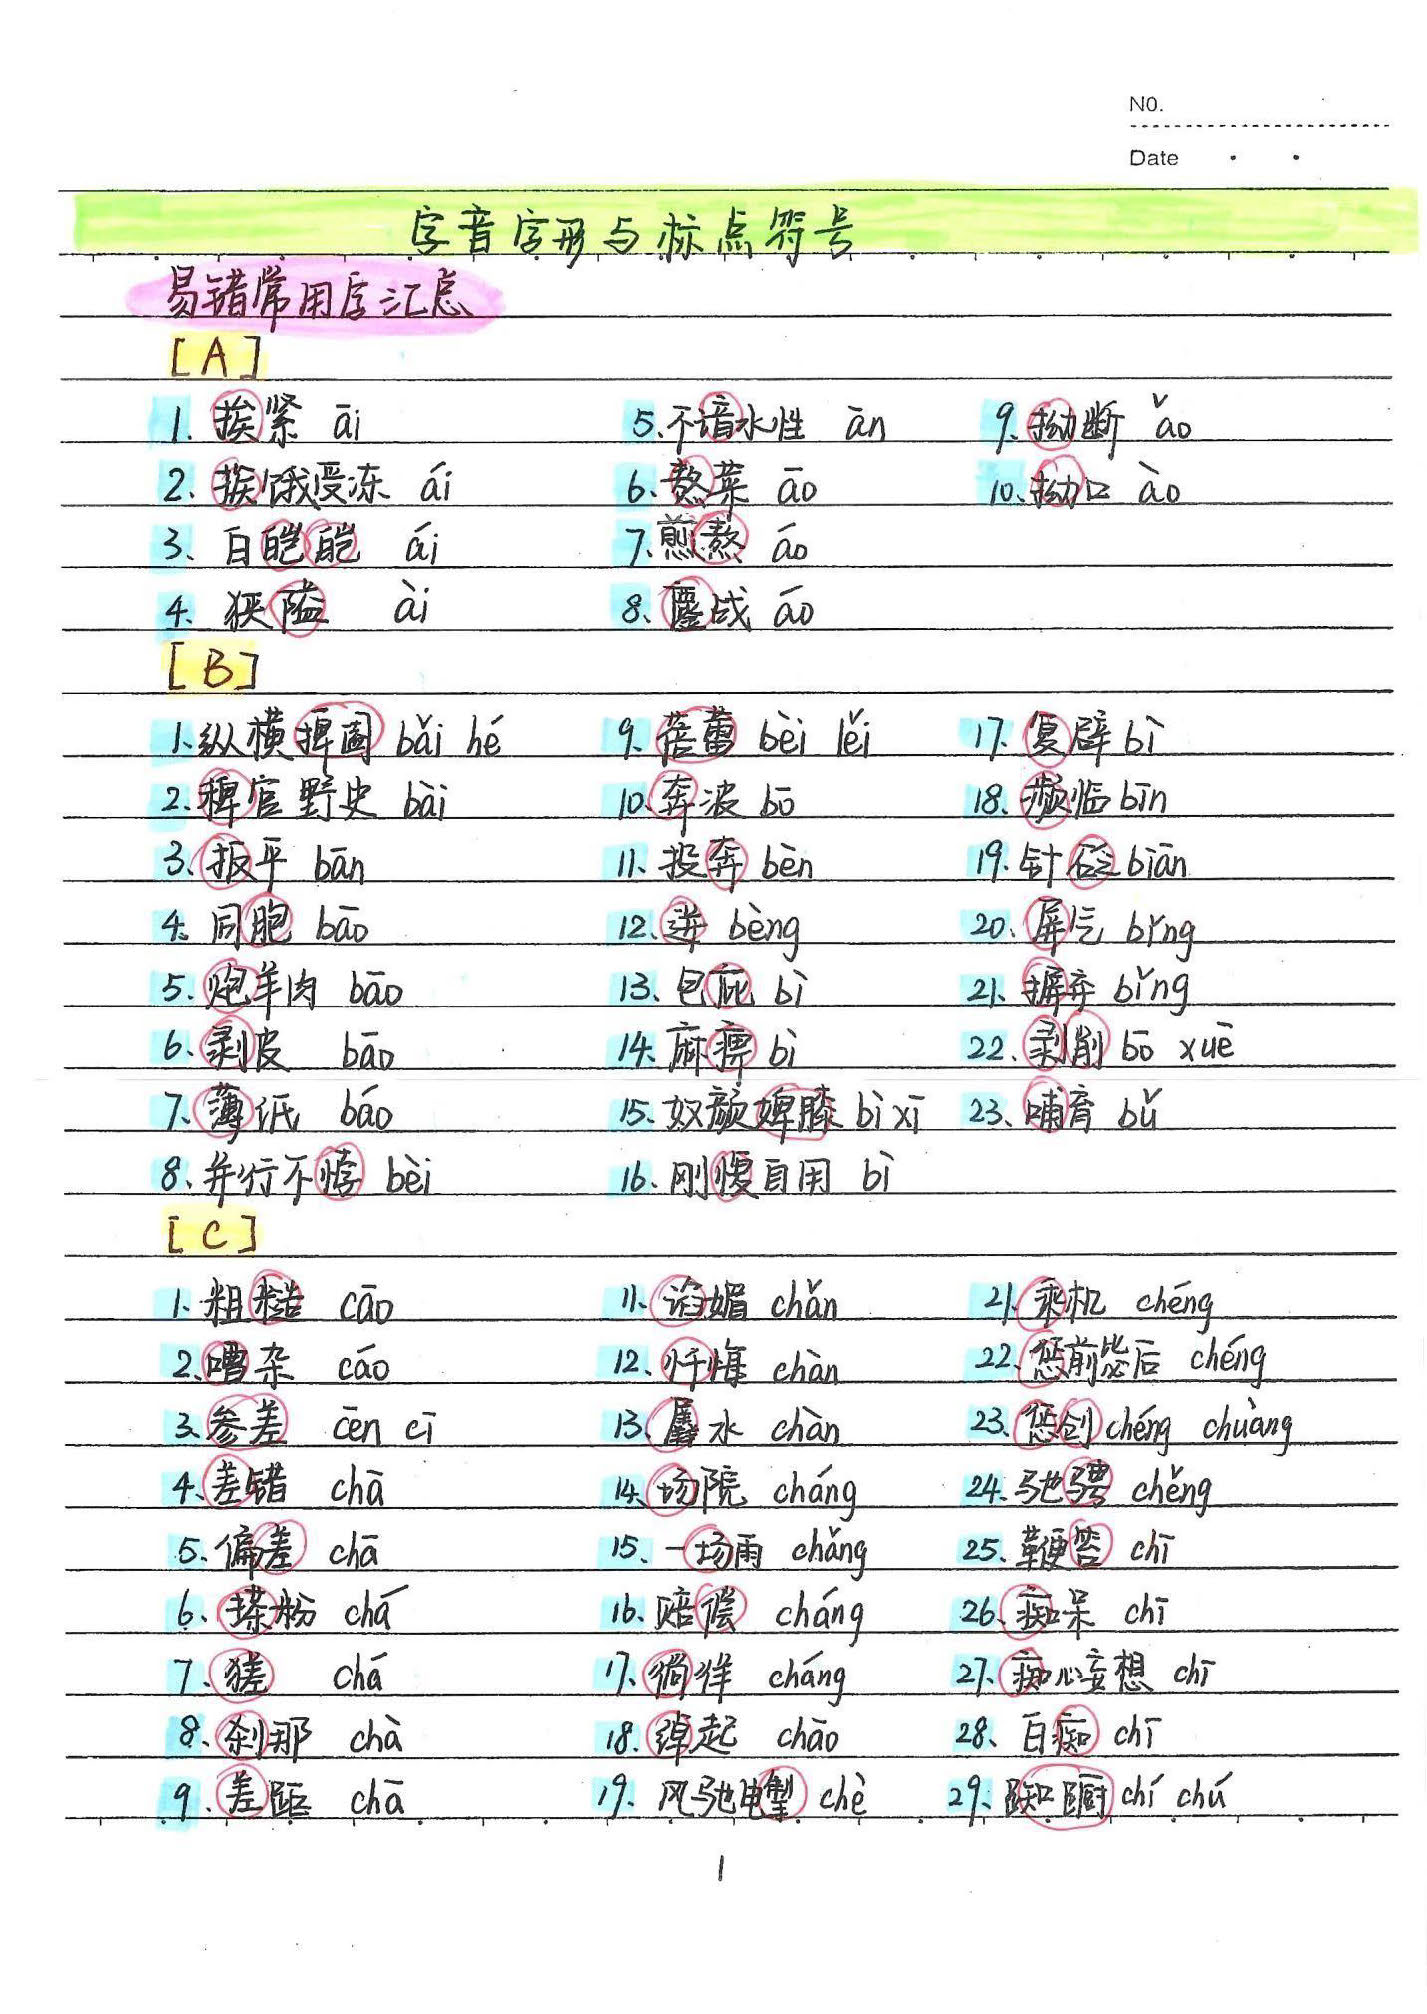 NO.
Date
字音字形与标点符号
易错常用字汇总
[A]
1. 挨紧 āi
5. 不谙水性 ān
9. 拗断 ǎo
2. 挨饿受冻 ái
6. 熬菜 āo
10. 拗口 ào
3. 白皑皑 ái
7. 煎熬 áo
4. 狭隘 ài
8. 鏖战 áo
[B]
1. 纵横捭阖 bǎi hé
9. 蓓蕾 bèi lěi
17. 复辟 bì
2. 稗官野史 bài
10. 奔波 bō
18. 濒临 bīn
3. 扳平 bān
11. 投奔 bèn
19. 针砭 biān
4. 同胞 bāo
12. 迸 bèng
20. 屏气 bǐng
5. 炮羊肉 bāo
13. 包庇 bì
21. 摒弃 bǐng
6. 剥皮 bāo
14. 麻痹 bì
22. 剥削 bō xuē
7. 薄纸 báo
15. 奴颜婢膝 bì xī
23. 哺育 bǔ
8. 并行不悖 bèi
16. 刚愎自用 bì
[C]
1. 粗糙 cāo
11. 谄媚 chǎn
21. 乘机 chéng
2. 嘈杂 cáo
12. 忏悔 chàn
22. 惩前毖后 chéng
3. 参差 cēn cī
13. 羼水 chàn
23. 惩创 chéng chuàng
4. 差错 chā
14. 场院 cháng
24. 驰骋 chěng
5. 偏差 chā
15. 一场雨 cháng
25. 鞭笞 chī
6. 搽粉 chá
16. 赔偿 cháng
26. 痴呆 chī
7. 猹 chá
17. 徜徉 cháng
27. 痴心妄想 chī
8. 刹那 chà
18. 绰起 chāo
28. 白痴 chī
9. 差距 chā
19. 风驰电掣 chè
29. 踟蹰 chí chú
1